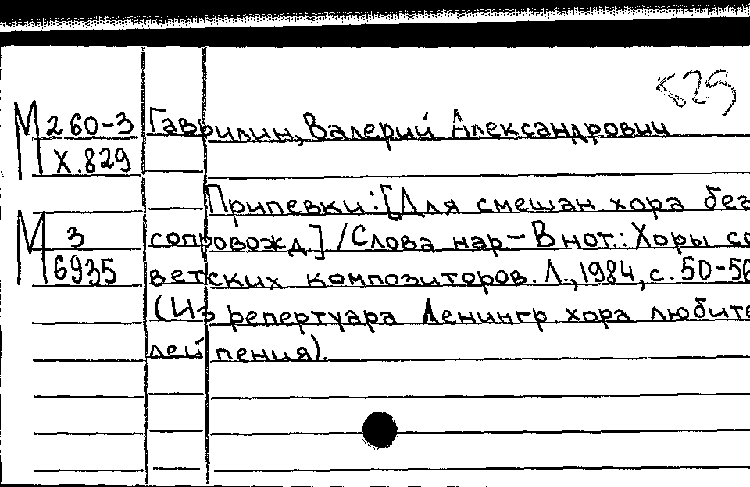 829
М 260-3 Гаврилин, Валерий Александрович
Х.829
Припевки: [Для смешан хора без
М 3 сопровожд.] / Слова нар - В нот.: Хоры со
6935 ветских композиторов. Л., 1984, с. 50-56
(Из репертуара Ленингр. хора любите
лей пения).